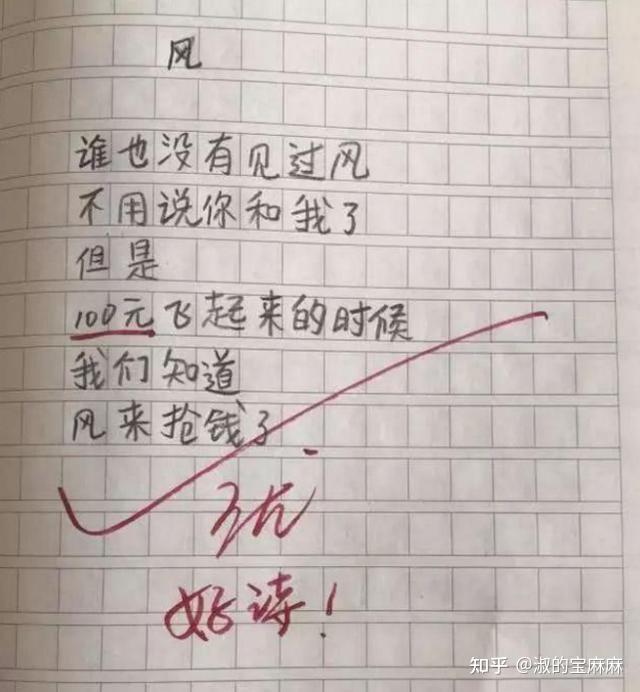 风
谁也没有见过风
不用说你和我了
但是
100元飞起来的时候
我们知道
风来抢钱了
优
好诗！
知乎 @淑的宝麻麻